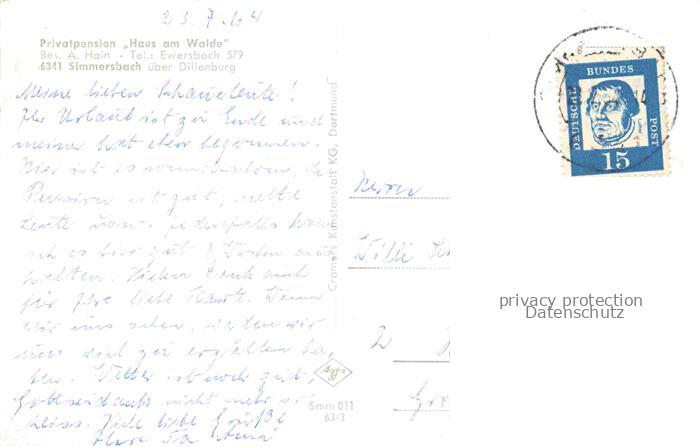 23.7.64
Privatpension „Haus am Walde"
Bes. A. Hain - Tel.: Ewersbach 579
6341 Simmersbach über Dillenburg
Meine lieben
Ihr Urlaub ist zu Ende und
meiner hat eben begonnen.
Hier ist es wunderschön, die
Pension ist gut, nette
Leute usw. jedenfalls kann
ich es hier gut 3 Wochen aus
halten. Vielen Dank auch
für Ihre liebe Karte. Wenn
wir uns sehen, werden wir
uns viel zu erzählen ha,
ben. Wetter ist noch gut,
Gottseidank nicht mehr so
heiss. Viele liebe Grüße
Ihre
Cramers Kunstanstalt KG, Dortmund
Smm 011
63/3
DEUTSCHE BUNDES POST
15
Herrn
Willi
2
privacy protection
Datenschutz